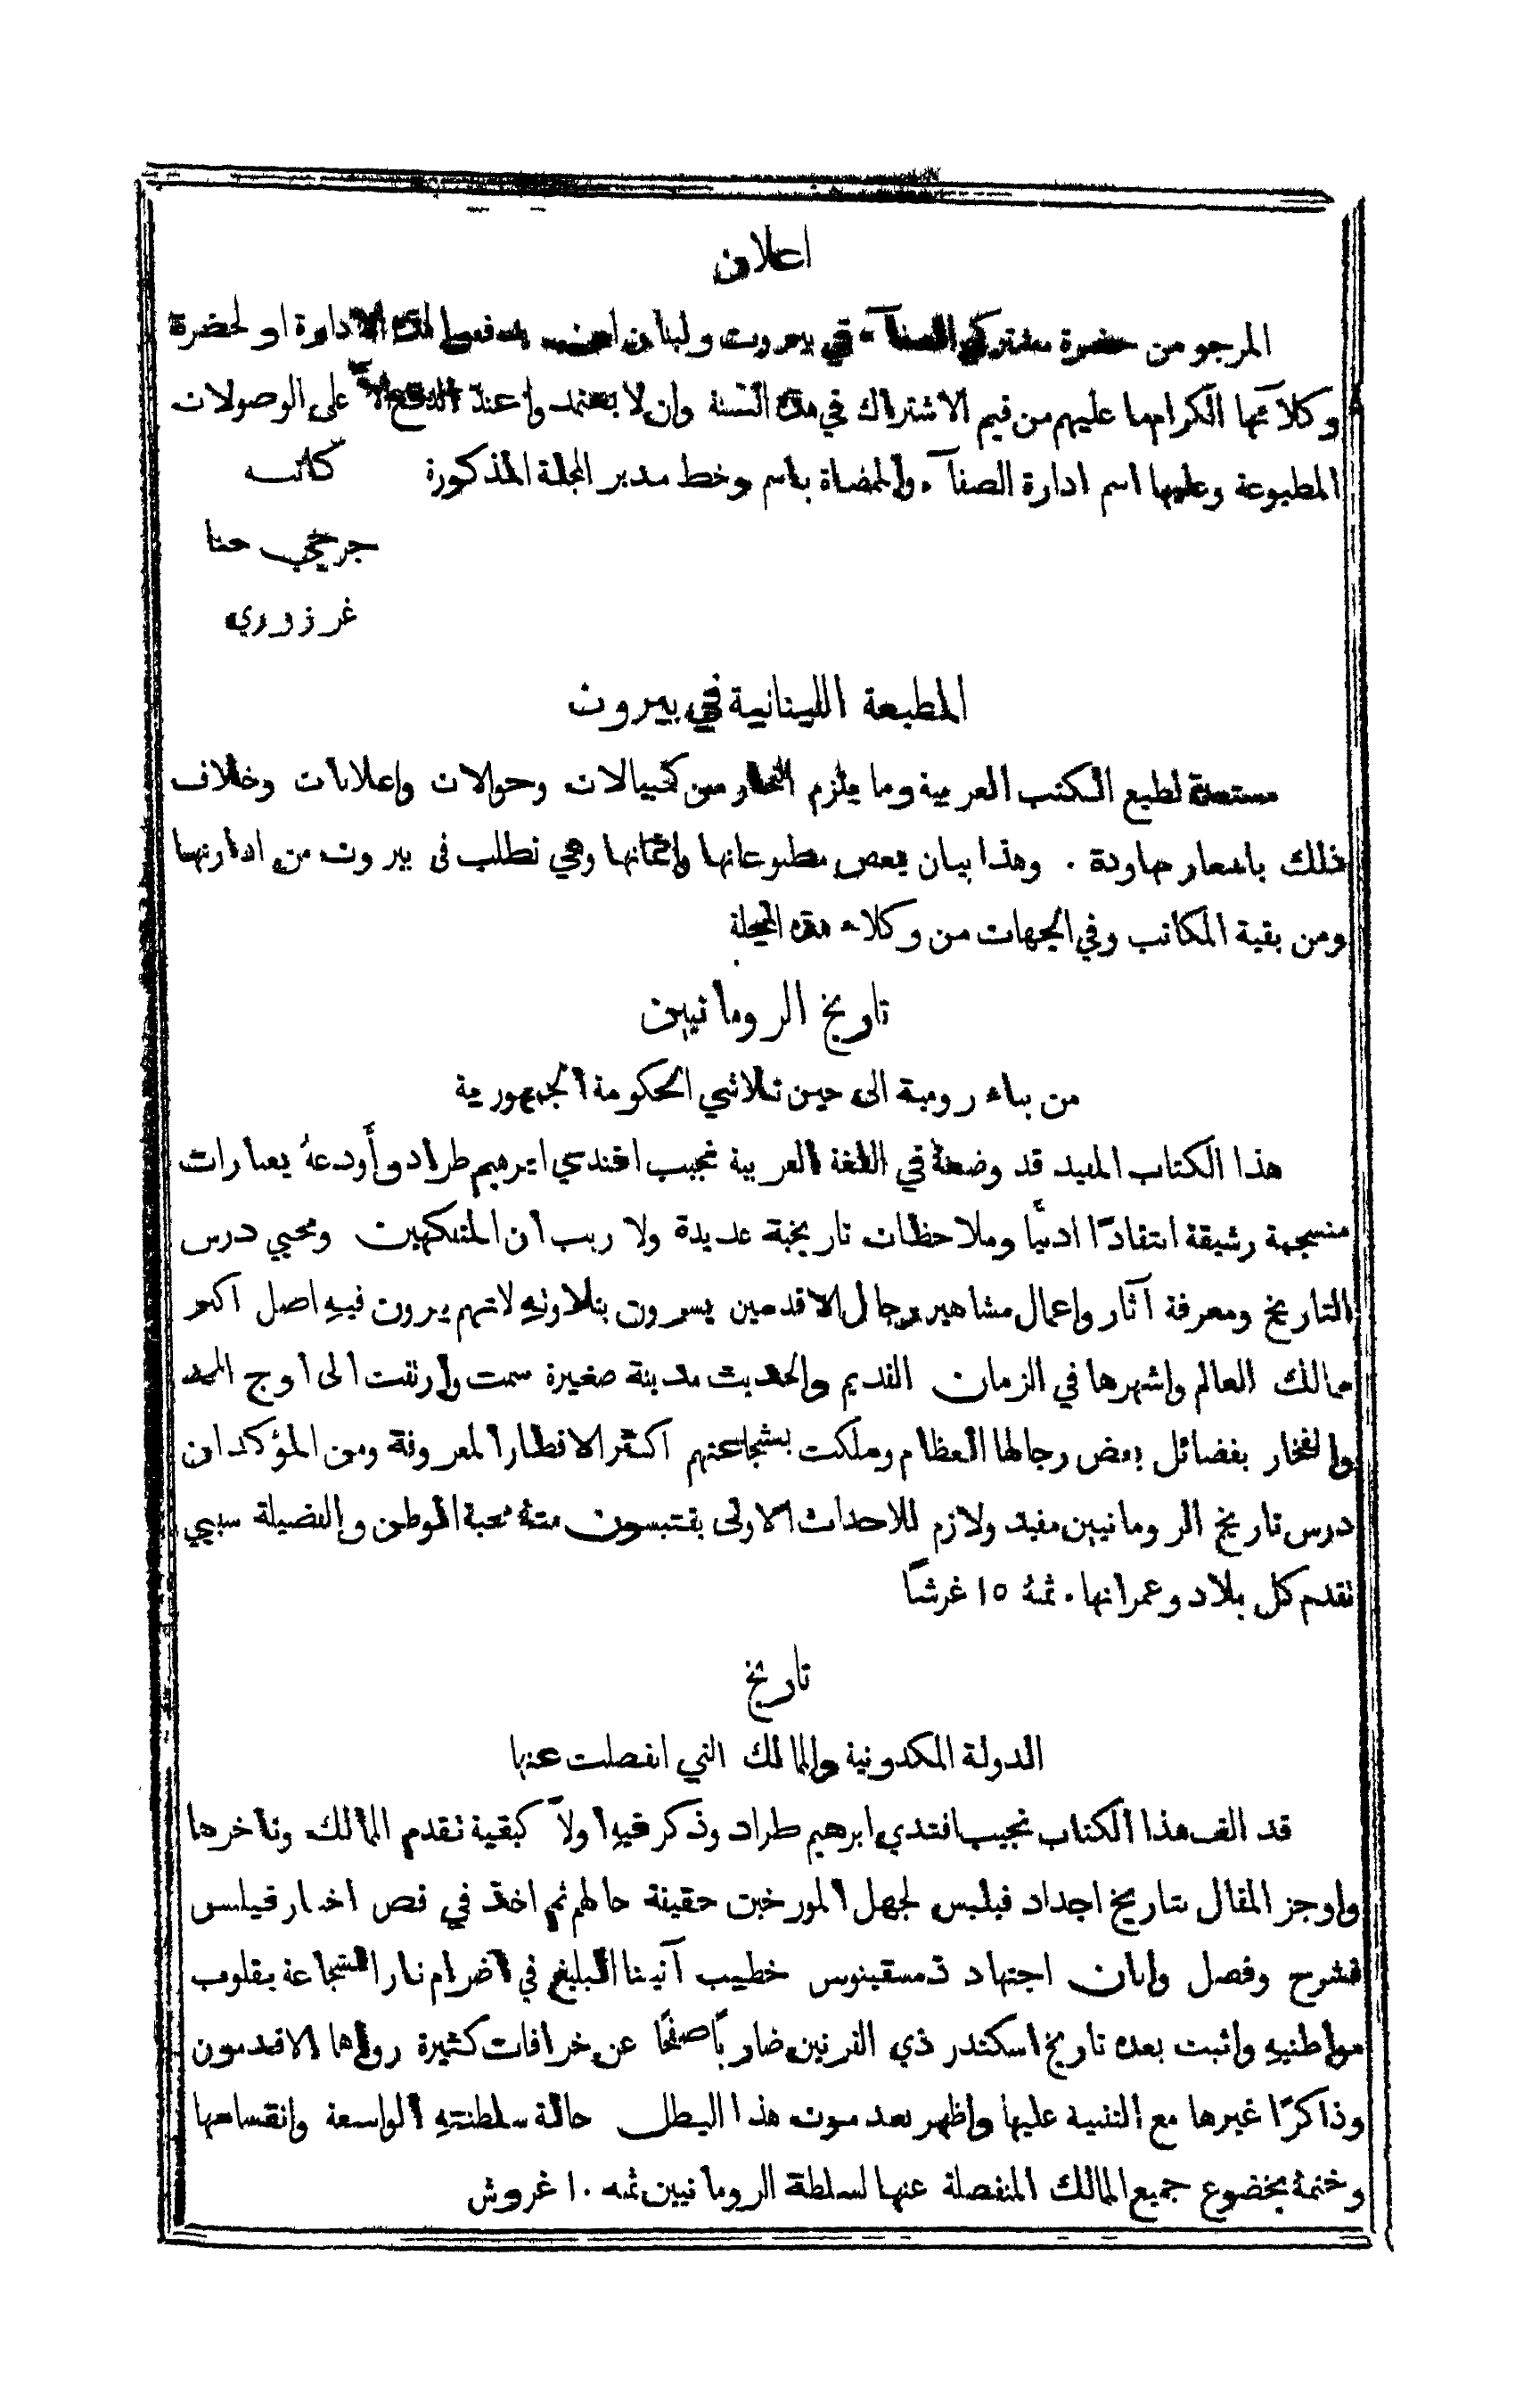 اعلان
المرجو من حضرة مشتركي الصفآء في بيروت ولبنان ان يدفعوا لهذه الادارة او لحضرة
وكلآئها الكرام ما عليهم من قيم الاشتراك في هذه السنة وان لا يعتمدوا عند الدفع الاَّ على الوصولات
المطبوعة وعليها اسم ادارة الصفآء والممضاة باسم وخط مدير المجلة المذكورة كاتبه
جرجي حنا
غرزوزي
المطبعة اللبنانية في بيروت
مستعدة لطبع الكتب العربية وما يلزم التجار من كمبيالات وحوالات واعلانات وخلاف
ذلك باسعار مهاودة . وهذا بيان بعض مطبوعاتها واثمانها وهي تطلب في بيروت من ادارتها
ومن بقية المكاتب وفي الجهات من وكلاء هذه المجلة
تاريخ الرومانيين
من بناء رومية الى حين تلاشي الحكومة الجمهورية
هذا الكتاب المفيد قد وضعهُ في اللغة العربية نجيب افندي ابرهيم طراد وأودعهُ بعبارات
منسجمة رشيقة انتقادًا ادبيًا وملاحظات تاريخية عديدة ولا ريب ان المتفكهين ومحبي درس
التاريخ ومعرفة آثار واعمال مشاهير رجال الاقدمين يسرون بتلاوتهِ لانهم يرون فيهِ اصل اكبر
ممالك العالم واشهرها في الزمان القديم والحديث مدينة صغيرة سمت وارتقت الى اوج المجد
والفخار بفضائل بعض رجالها العظام وملكت بشجاعتهم اكثر الاقطار المعروفة ومن المؤكد ان
درس تاريخ الرومانيين مفيد ولازم للاحداث الاولى يقتبسون منهُ محبة الوطن والفضيلة سببي
تقدم كل بلاد وعمرانها . ثمنهُ ١٥ غرشًا
تاريخ
الدولة المكدونية والممالك التي انفصلت عنها
قد الف هذا الكتاب نجيب افندي ابرهيم طراد وذكر فيهِ اولاً كيفية تقدم الممالك وتأخرها
واوجز المقال بتاريخ اجداد فيلبس لجهل المورخين حقيقة حالهم ثم اخذ في قص اخبار فيلبس
فشرح وفصل وابان اجتهاد ذمسثينوس خطيب آثينا البليغ في اضرام نار الشجاعة بقلوب
مواطنيهِ واثبت بعده تاريخ اسكندر ذي القرنين ضاربًا صفحًا عن خرافات كثيرة رواها الاقدمون
وذاكرًا غيرها مع التنبيه عليها واظهر بعد موت هذا البطل حالة سلطنتهِ الواسعة وانقسامها
وختمهُ بخضوع جميع الممالك المنفصلة عنها لسلطة الرومانيين ثمنه ١٠ غروش